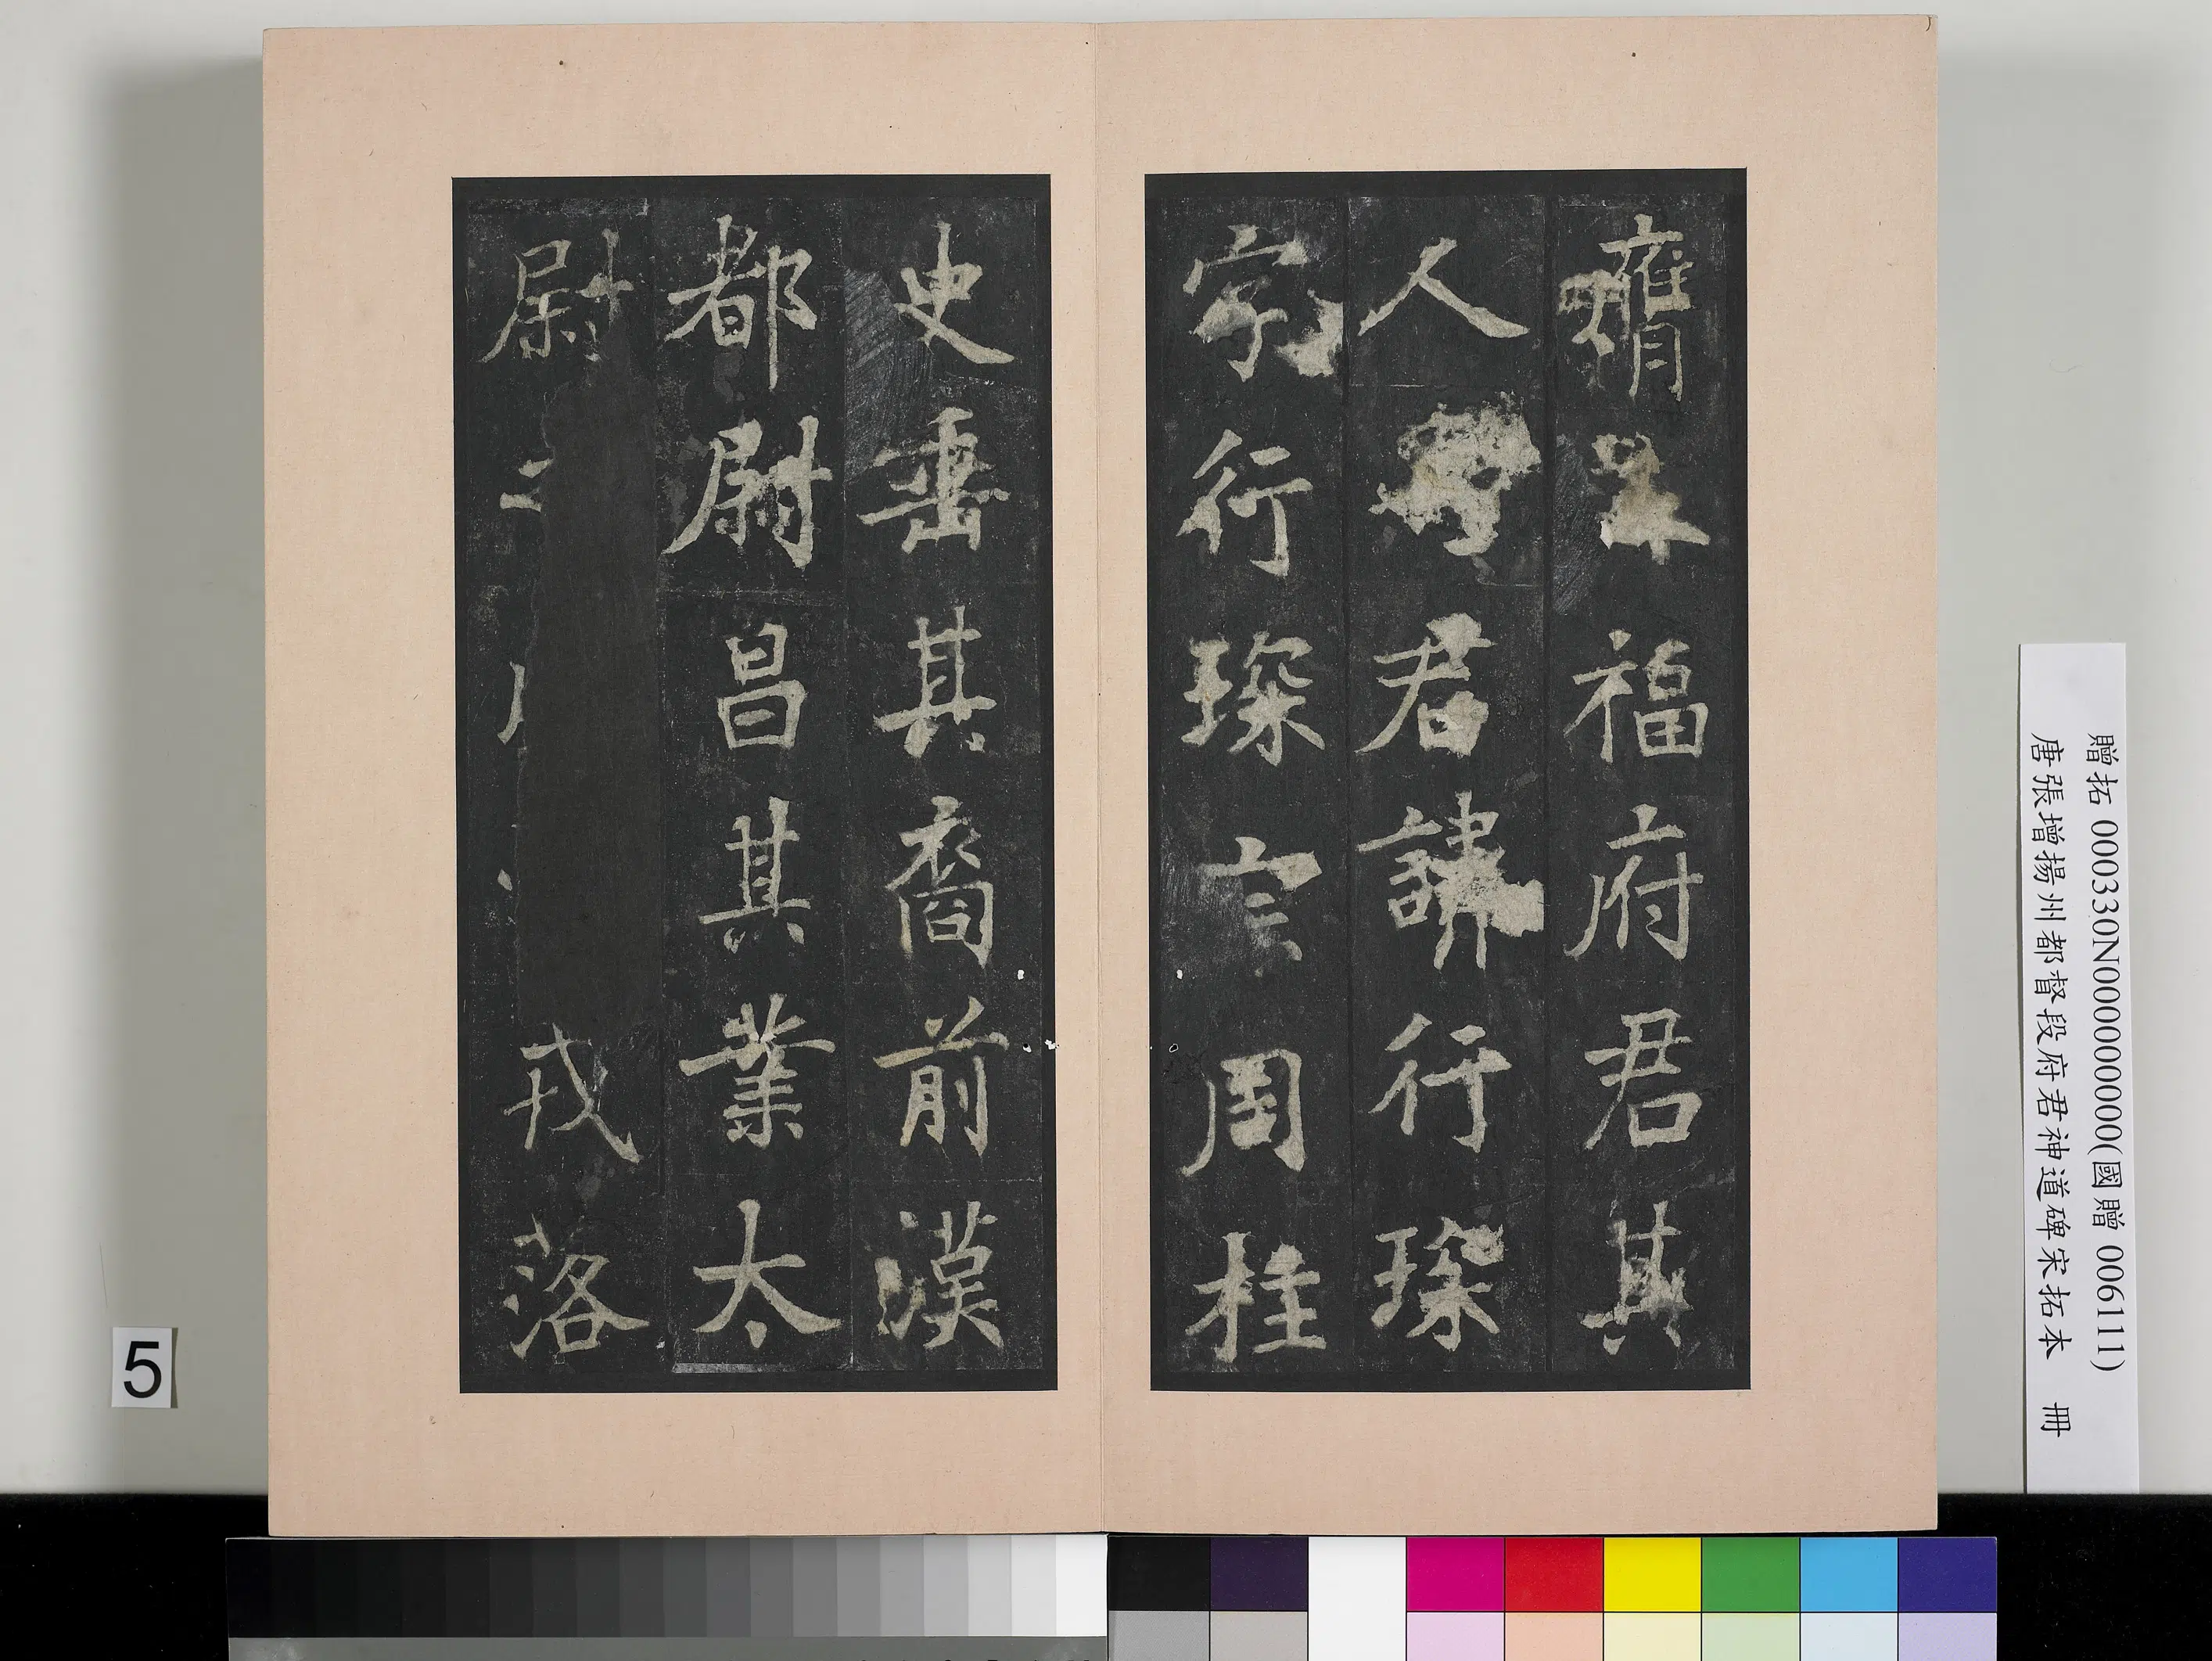 福府君其
人君諱行琛
字行琛宗周柱
史垂其裔前漢
都尉昌其業太
尉戎落
贈拓 000330N000000000(國贈 006111)
唐張增揚州都督段府君神道碑宋拓本 冊
5